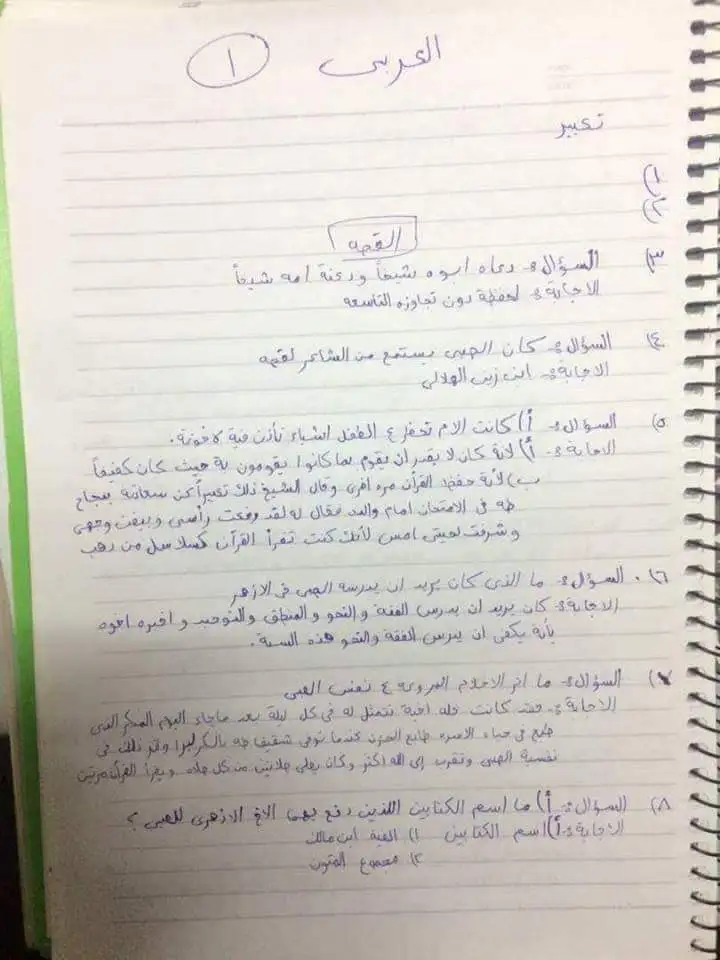 العربى ١
تعبير
١)
٢)
القصه
٣) السؤال:- دعاه ابوه شيخاً ودعتة امه شيخاً
الاجابة:- لحفظة دون تجاوزه التاسعه
٤) السؤال:- كان الصبى يستمع من الشاعر لقصه
الاجابة:- ابى زيد الهلالى
٥) السؤال:- أ) كانت الام تحظر ع الطفل اشياء تأذن فية لاخوتة.
الاجابة:- أ) لانة كان لا يقدر ان يقوم بما كانوا يقومون بة حيث كان كفيفاً
ب) لأنة حفظ القرآن مره اخرى وقال الشيخ ذلك تعبيراً عن سعادتة بنجاح
طه فى الامتحان امام والده فقال له لقد رفعت رأسى وبيضت وجهى
وشرفت لحيتى امس لأنك كنت تقرأ القرآن كسلاسل من ذهب
٦) السؤال:- ما الذى كان يريد ان يدرسه الصبى فى الازهر
الاجابة:- كان يريد ان يدرس الفقة والنحو والمنطق والتوحيد و اخبره اخوه
بأنة يكفى ان يدرس الفقة والنحو هذه السنة.
٧) السؤال:- ما اثر الاحلام المروعة ع نفس الصبى
الاجابة:- فقد كانت علة اخية تتمثل له فى كل ليلة بعد ماجاء اليوم المنكر الذى
طبع فى حياة الاسره طابع الحزن عندما توفى شقيق طه بالكوليرا واثر ذلك فى
نفسية الصبى وتقرب إلى الله اكثر وكان يصلى صلاتين من كل صلاه ويقرأ القرآن مرتين
٨) السؤال:- أ) ما اسم الكتابين اللذين دفع بهما الاخ الازهرى للصبى ؟
الاجابة:- أ) اسم الكتابين ١) الفية ابن مالك
٢) مجموع المتون